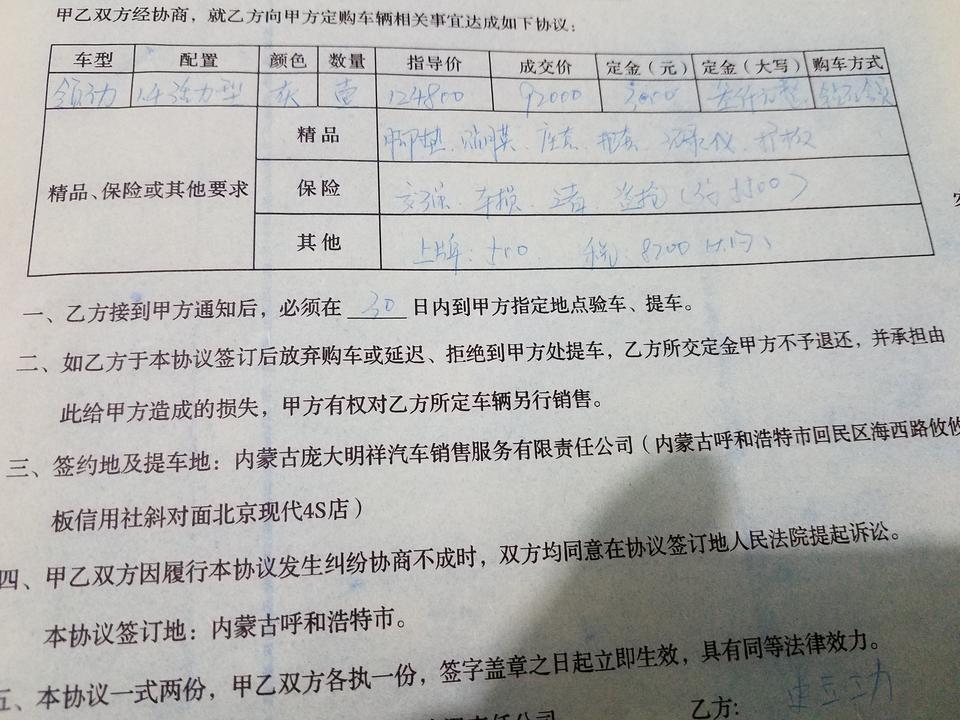 甲乙双方经协商，就乙方向甲方定购车辆相关事宜达成如下协议：
车型 配置 颜色 数量 指导价 成交价 定金（元） 定金（大写） 购车方式
领动 1.4 活力型 灰 壹 124800 92000 叁仟元整
精品、保险或其他要求
精品 脚垫、消膜、座套、把套、记录仪、护板
保险 交强、车损、三者、盗抢（约5500）
其他 上牌：500 税：8200
一、乙方接到甲方通知后，必须在 30 日内到甲方指定地点验车、提车。
二、如乙方于本协议签订后放弃购车或延迟、拒绝到甲方处提车，乙方所交定金甲方不予退还，并承担由
此给甲方造成的损失，甲方有权对乙方所定车辆另行销售。
三、签约地及提车地：内蒙古庞大明祥汽车销售服务有限责任公司（内蒙古呼和浩特市回民区海西路攸攸
板信用社斜对面北京现代4S店）
四、甲乙双方因履行本协议发生纠纷协商不成时，双方均同意在协议签订地人民法院提起诉讼。
本协议签订地：内蒙古呼和浩特市。
五、本协议一式两份，甲乙双方各执一份，签字盖章之日起立即生效，具有同等法律效力。
乙方：